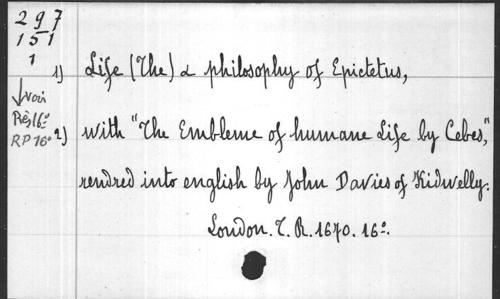 297
151
1
1) Life (The) & philosophy of Epictetus,
↓voir
Rés 16º
RP 16º
2) with "The Embleme of humane Life by Cebes,"
rendred into english by John Davies of Kidwelly.
London. T. R. 1670. 16º.